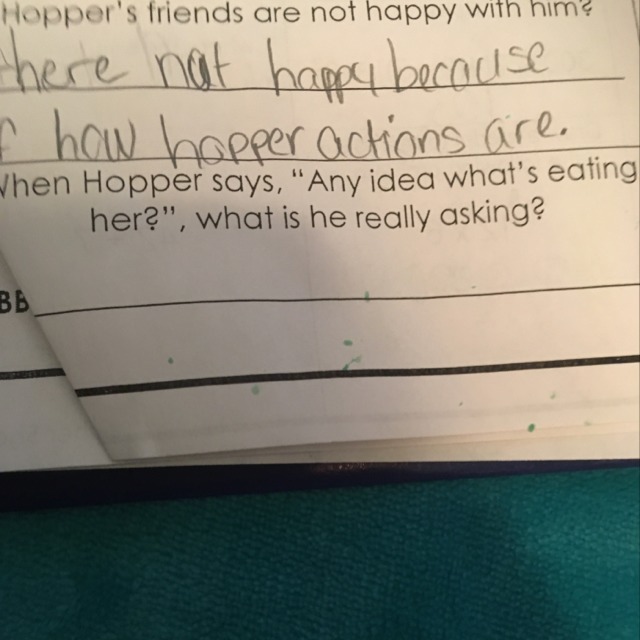 Hopper's friends are not happy with him?
there not happy because
f how hopper actions are.
When Hopper says, "Any idea what's eating
her?", what is he really asking?
BB